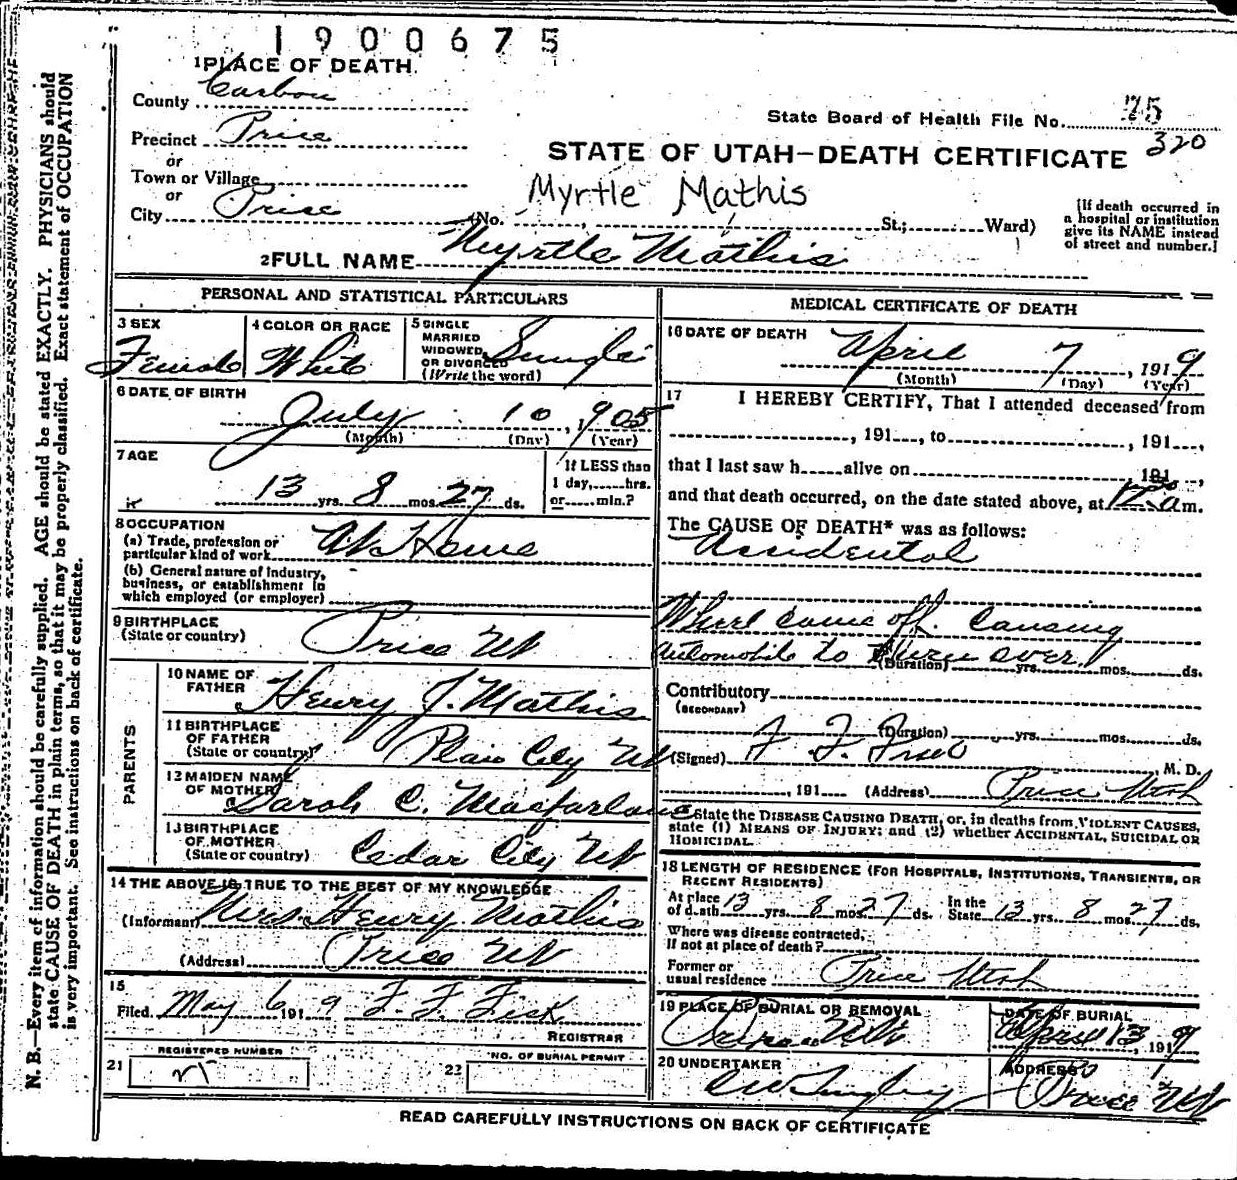 1900675
1 PLACE OF DEATH
County Carbon
State Board of Health File No. 75
320
Precinct Price
or
Town or Village
or
City Price
STATE OF UTAH—DEATH CERTIFICATE
Myrtle Mathis
(No. , St.; Ward)
[If death occurred in a hospital or institution give its NAME instead of street and number.]
2 FULL NAME Myrtle Mathis
PERSONAL AND STATISTICAL PARTICULARS
3 SEX
Female
4 COLOR OR RACE
White
5 SINGLE MARRIED WIDOWED OR DIVORCED (Write the word)
Single
6 DATE OF BIRTH
July 10, 1905
(Month) (Day) (Year)
7 AGE
13 yrs. 8 mos. 27 ds.
If LESS than 1 day, hrs. or min.?
8 OCCUPATION
(a) Trade, profession or particular kind of work At Home
(b) General nature of industry, business, or establishment in which employed (or employer)
9 BIRTHPLACE
(State or country) Price Ut
PARENTS
10 NAME OF FATHER Henry J. Mathis
11 BIRTHPLACE OF FATHER (State or country) Plain City Ut
12 MAIDEN NAME OF MOTHER Sarah C. Macfarlane
13 BIRTHPLACE OF MOTHER (State or country) Cedar City Ut
14 THE ABOVE IS TRUE TO THE BEST OF MY KNOWLEDGE
(Informant) Mrs. Henry Mathis
(Address) Price Ut
15
Filed. May 6 1919 F. F. Fisk
REGISTRAR
21 REGISTERED NUMBER
22 NO. OF BURIAL PERMIT
MEDICAL CERTIFICATE OF DEATH
16 DATE OF DEATH
April 7, 1919
(Month) (Day) (Year)
17 I HEREBY CERTIFY, That I attended deceased from
, 191 , to , 191 ,
that I last saw h alive on 191 ,
and that death occurred, on the date stated above, at 12 a m.
The CAUSE OF DEATH* was as follows:
Accidental
Wheel came off. Causing
Automobile to turn over
(Duration) yrs. mos. ds.
Contributory
(SECONDARY)
(Duration) yrs. mos. ds.
(Signed) M. D.
, 191 (Address) Price Utah
* State the DISEASE CAUSING DEATH, or, in deaths from VIOLENT CAUSES, state (1) MEANS OF INJURY; and (2) whether ACCIDENTAL, SUICIDAL OR HOMICIDAL.
18 LENGTH OF RESIDENCE (FOR HOSPITALS, INSTITUTIONS, TRANSIENTS, OR RECENT RESIDENTS)
At place of death 13 yrs. 8 mos. 27 ds. In the State 13 yrs. 8 mos. 27 ds.
Where was disease contracted, if not at place of death?
Former or usual residence Price Utah
19 PLACE OF BURIAL OR REMOVAL
DATE OF BURIAL
April 13, 1919
20 UNDERTAKER
ADDRESS
Price Ut
READ CAREFULLY INSTRUCTIONS ON BACK OF CERTIFICATE
N. B.—Every item of information should be carefully supplied. AGE should be stated EXACTLY. PHYSICIANS should
state CAUSE OF DEATH in plain terms, so that it may be properly classified. Exact statement of OCCUPATION
is very important. See instructions on back of certificate.